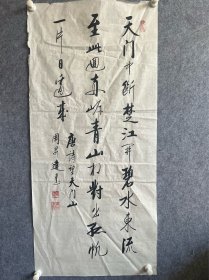 天门中断楚江开碧水东流
至此回两岸青山相对出孤帆
一片日边来
唐诗望天门山